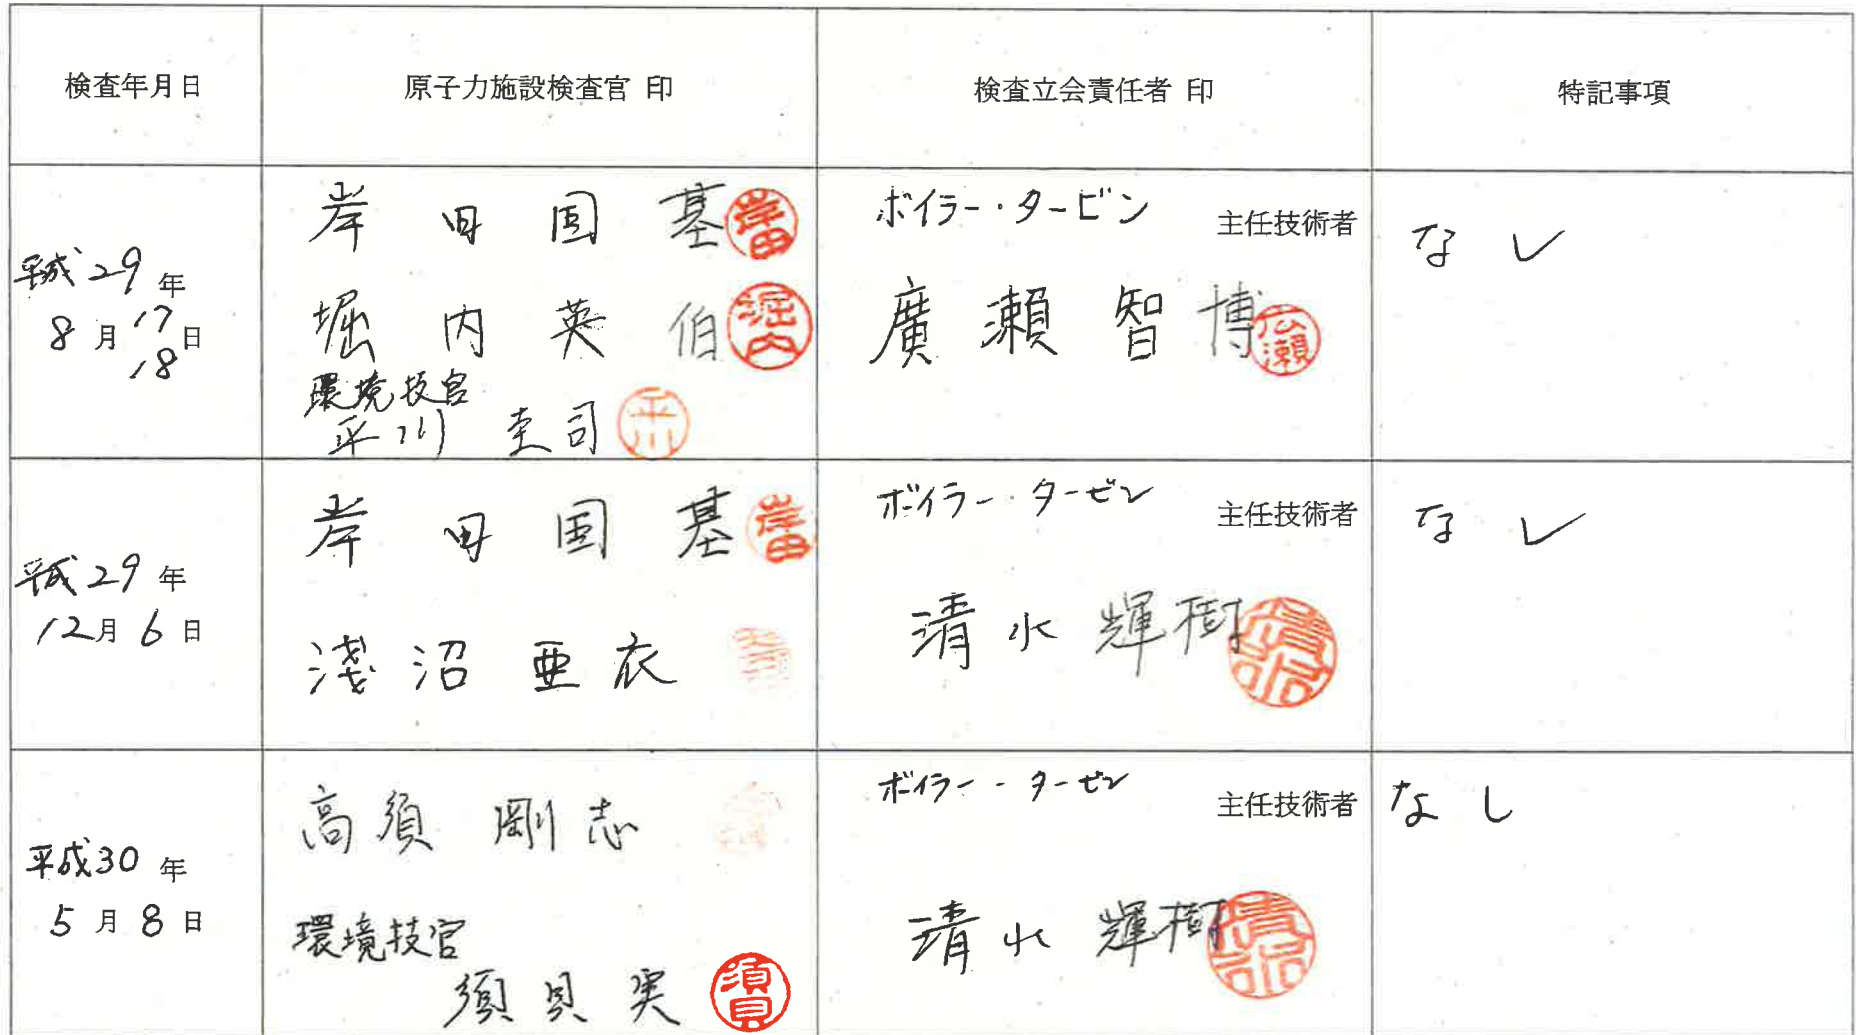 検査年月日
原子力施設検査官 印
検査立会責任者 印
特記事項
平成29年
8月17日
18
岸田国基 岸田
堀内英伯 堀内
環境技官
平川圭司 平川
ボイラー・タービン 主任技術者
廣瀬智博 広瀬
なし
平成29年
12月6日
岸田国基 岸田
淺沼亜衣
ボイラー・タービン 主任技術者
清水輝樹 清水
なし
平成30年
5月8日
高須剛志
環境技官
須貝実 須貝
ボイラー・タービン 主任技術者
清水輝樹 清水
なし